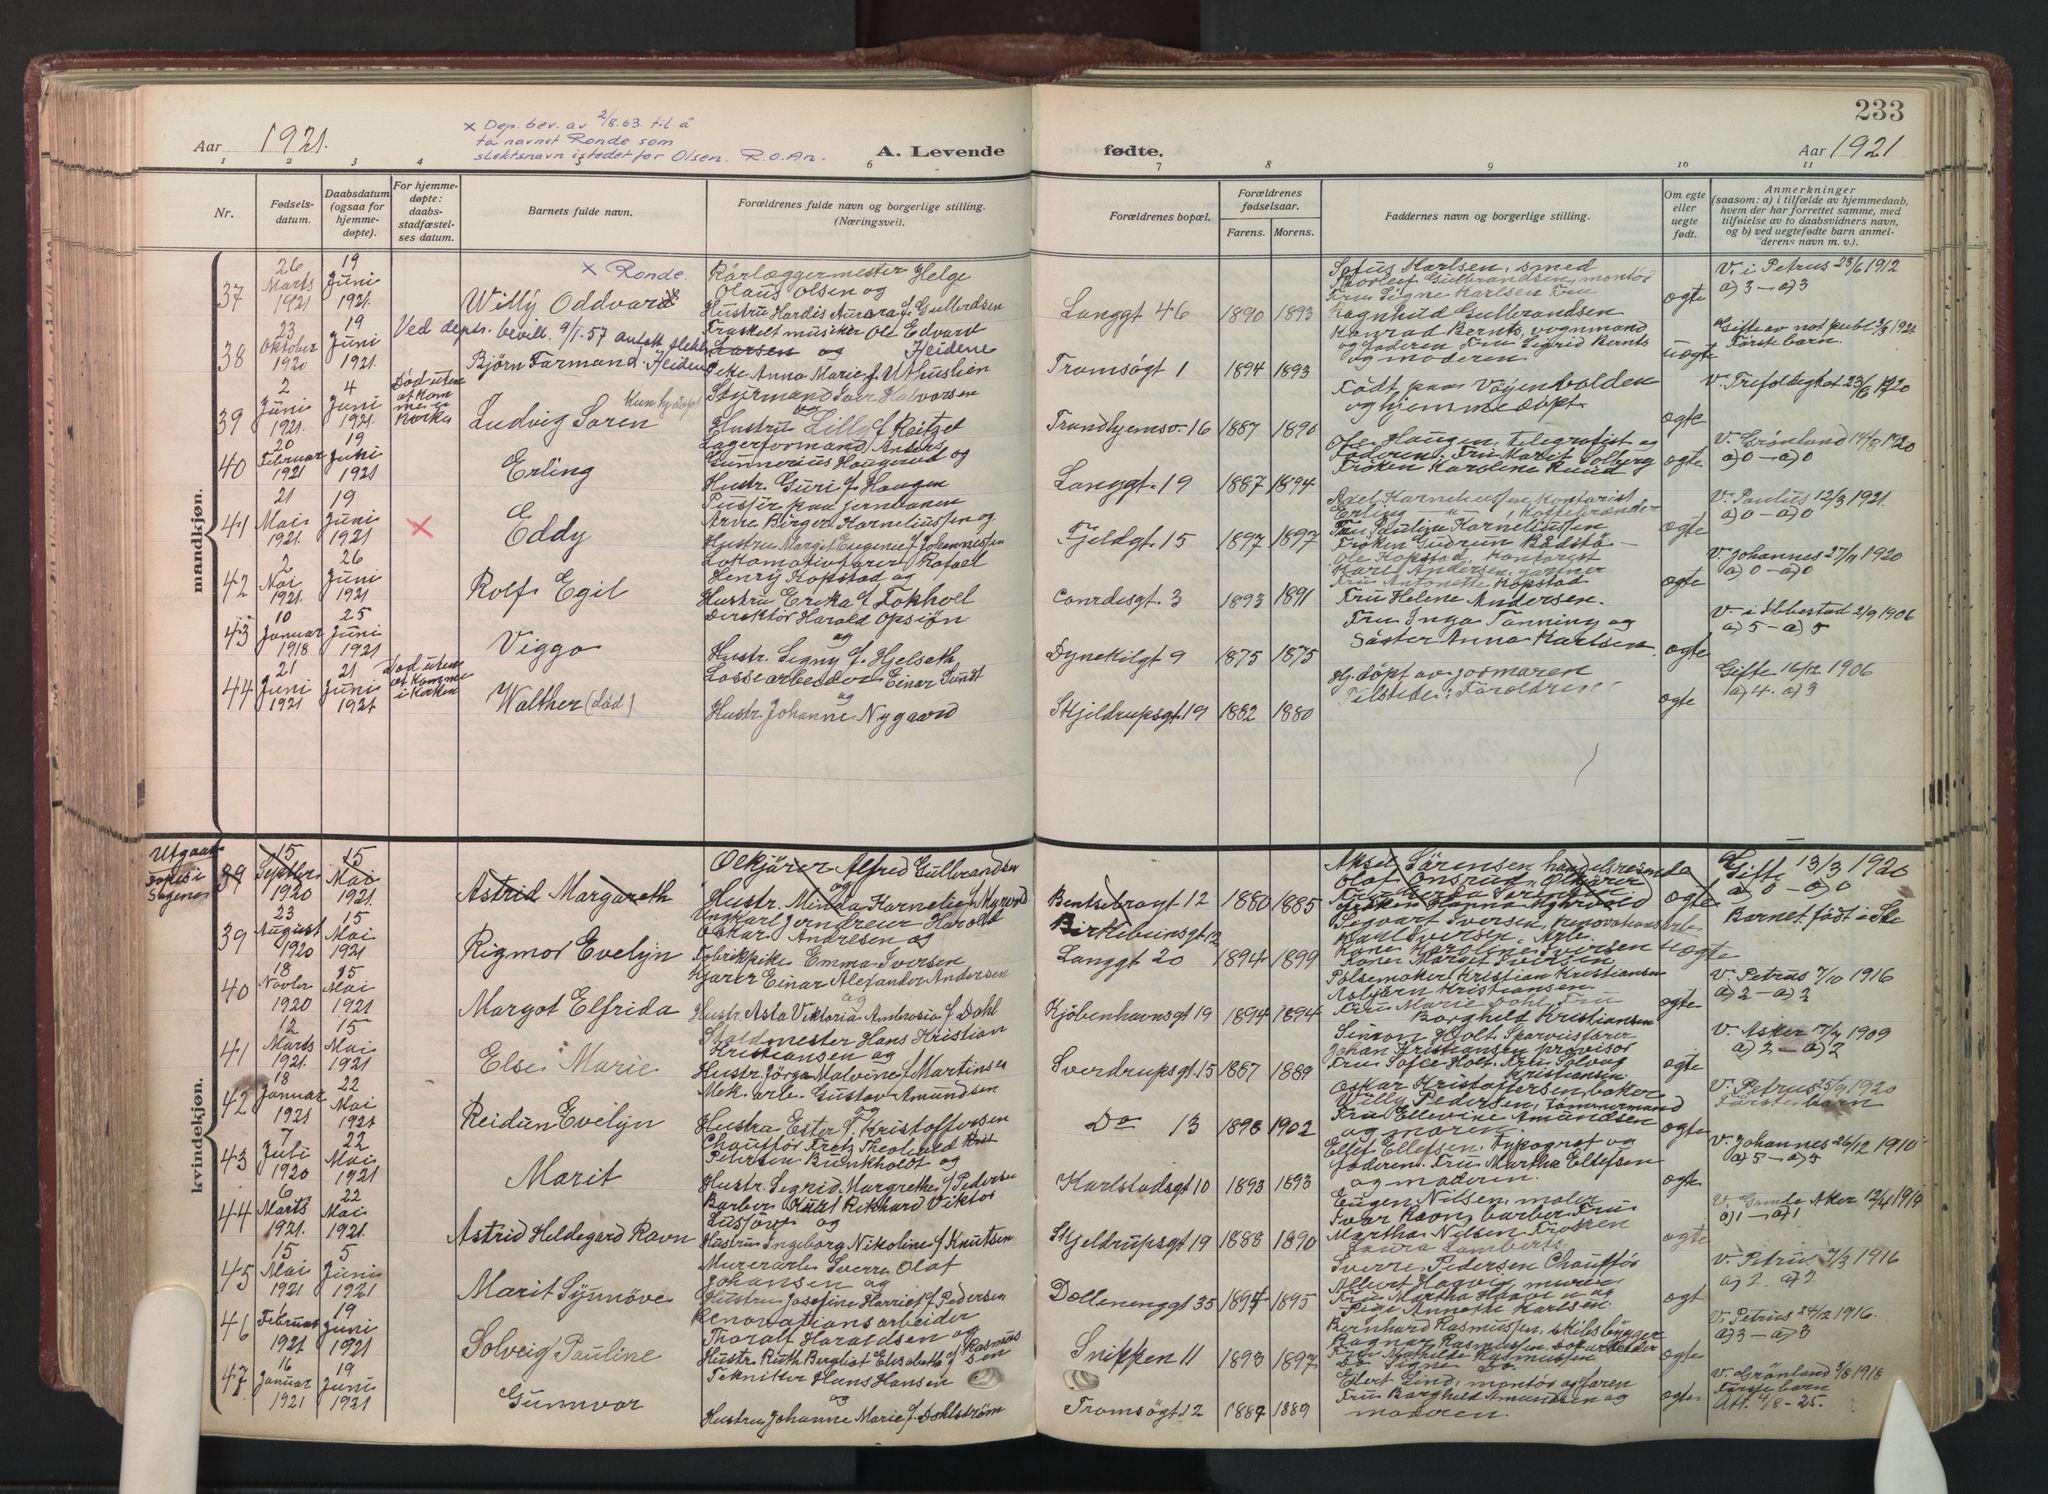 233
Aar 1921.
x Dep. bev. av 2/8.63. til å
ta navnet Ronde som
slektsnavn istedet for Olsen. R.O.An.
A. Levende fødte.
Aar 1921
1 2 3 4 5 6 7 8 9 10 11
Nr.
Fødsels-
datum.
Daabsdatum
(ogsaa for
hjemme-
døpte).
For hjemme-
døpte:
daabs-
stadfæstel-
ses datum.
Barnets fulde navn.
Forældrenes fulde navn og borgerlige stilling.
(Næringsvei).
Forældrenes bopæl.
Forældrenes
fødselsaar.
Farens. Morens.
Faddernes navn og borgerlige stilling.
Om egte
eller
uegte
født.
Anmerkninger
(saasom: a) i tilfælde av hjemmedaab,
hvem der har forrettet samme, med
tilføielse av to daabsvidners navn,
og b) ved uegtefødte barn anmel-
derens navn m. v.).
mandkjøn.
37
26
Marts
1921
19
Juni
1921.
x Ronde.
Willy Oddvard x
Rörlæggermester Helge
Olaus Olsen og
Hustru Hardis Aurora f. Gulbrdsen
Langgt 46
1890 1893
Sofus Karlsen, smed
Thorleif Gulbrandsen, montör
Fru Signe Karlsen Fru
Ragnhild Gulbrandsen
ægte
V. i Petrus 23/6 1912
a) 3 — a) 3
38
23
Oktober
1920
19
Juni
1921.
Ved deps. bevill. 9/1.57 antatt slektsn.
Björn Farmand. Heidene
Fraskilt musiker Ole Edvard
Larsen og Heidene
Pike Anna Marie f. Uthuslien
Tromsögt 1
1894 1893
Konrad Berntz, vognmand
og faderen Fru Sigrid Berntz
og moderen
uægte
Gifte av not publ 3/3 1921
Förste barn.
39
2
Juni
1921.
4
Juni
1921.
Død uten
at kom
me i
Kirka
Ludvig Soren
Kun hj.døpt
Styrmand Ivar Halvorsen
og
Hustru Lilly f. Reitzet
Trondhjemsv. 16
1887 1890
Födt paa Vöienvolden
og hjemmedöpt.
ægte
V. Trefoldighet 23/6 1920
40
20
Februar
1921
19
Juni
1921.
Erling
Lagerformand Anders
Gunnerius Haugerud og
Hustr. Guri f. Haugen
Langgt. 19
1887 1894
Ole Haugen, telegrafist og
Faderen. Fru Marit Solberg
Fröken Karoline Ruud
ægte
V. Grønland 14/8 1920
a) 0 — a) 0
41
21
Mai
1921.
19
Juni
1921
x
Eddy
Pusser paa jernbanen
Arne Birger Korneliussen og
Hustru Margit Eugenie f. Johannessen
Fjeldgt. 15
1897 1897
Axel Korneliussen, kontorist
Erling —"—, Kaffebrænder
Fru Pauline Korneliussen
Fröken Gudrun Bådstö —
ægte
V. Paulus 12/3 1921.
a) 0 — a) 0
42
2
Mai
1921.
26
Juni
1921
Rolf Egil
Lokomotivförer Rafael
Henry Kopstad og
Hustru Erika f. Fokhol
Conradisgt. 3
1893 1891
Ole Kopstad, kontorist
Karl Andersen, gartner
Fru Antonette Kopstad
Fru Helene Andersen.
ægte
V. Johannes 27/11 1920
a) 0 — a) 0
43
10
Januar
1918
25
Juni
1921
Viggo
Direktör Harold Opsiøn
og
Hustr. Signy f. Hjelseth
Dynekilgt 9
1875 1875
Fru Inga Tanning og
Söster Anna Karlsen.
ægte
V. i Ibbestad 2/9 1906
a) 5 — a) 5
44
21
Juni
1921
21
Juni
1921
Død uten
at komme
i Kirken
Walther (død)
Lossearbeider Einar Sundt
og
Hustr. Johanne Nygaard
Skjeldrupsgt. 19
1882 1880
Hj. döpt av jormoren
Tilstede: Foræeldrene
ægte
Gifte 16/12 1906
a) 4. a) 3
kvindekjøn.
Utgaar
Døpt i
Sagene
39
15
Septber
1920
15
Mai
1921.
Astrid Margareth
Ölkjörer Alfred Gulbrandsen
og
Hustr. Minda Kornelia f. Myrvold
Bentsebrogt 12
1880 1885
Aksel Sørensen, handelsreisende
Olaf Onsrud, Ølkjörer
ægte
Gifte 13/3 1920
a) 0 — a) 0
39
23
August
1920
15
Mai
1921
Rigmor Evelyn
Ungkarl Jerndreier Harald
Oskar Andresen og
Fabrikpike Emma Iversen
Birkebeinsgt 12
Langgt 20
1894 1899
Sigvart Iversen, renovationsarb.
Karl Iversen, Arb.
Kone Karoline Iversen
Kone Margit Iversen
uægte
Barnet født i Ske
40
18
Novber
1920
15
Mai
1921.
Margot Elfrida
Kjører Einar Alexander Andersen
og
Hustr. Asta Viktoria Ambrosia f. Dahl
Kjöbenhavnsgt 19
1894 1894
Pölsemaker Kristian Kristiansen
Asbjørn Kristiansen
Fru Marie Dahl, Fru
Borghild Kristiansen
ægte
V. Petrus 7/10 1916
a) 2 — a) 2
41
12
Marts
1921.
15
Mai
1921
Else Marie
Staldmester Hans Kristian
Kristiansen og
Hustr. Jörga Malvine f. Martinsen
Sverdrupsgt. 15
1887 1889
Simon Holt, Sporvisfører
Johan Kristiansen, provisor
Fru Sofie Holt. Fru Solveig
Kristiansen.
ægte
V. Asker 7/7 1909
a) 2 — a) 2
42
18
Januar
1921
22
Mai
1921
Reidun Evelyn
Mek. arb. Gustav Amundsen
og
Hustru Ester f. Kristoffersen
Do 13
1898 1902
Oskar Kristoffersen, baker
Willy Pedersen, tømmermand
Fru Ellevine Amundsen
og moren
ægte
V. Petrus 25/9 1920
Förste barn
43
7
Juli
1920
22
Mai
1921.
Marit
Chauffør Fretz Theobald Krist
Petersen Bunkholdt og
Hustr. Sigrid Margrethe f. Pedersen
Karlstadsgt 10
1893 1893
Elef Ellefsen, Typograf og
faderen. Fru Martha Ellefsen
og moderen.
ægte
V. Johannes 26/12 1910
a) 5 — a) 5
44
6
Marts
1921.
22
Mai
1921.
Astrid Hildegard Ravn
Barber Knut Rikhard Viktor
og
Hustru Ingeborg Nikoline f. Knutsen
Skjeldrupsgt 19
1888 1890
Eugen Nilsen, maler
Ivar Ravn, barber Fru
Martha Nilsen Fröken
Laura Lamberts
ægte
V. Gamle Aker 12/4 1914
a) 1 — a) 1
45
15
Mai
1921
5
Juni
1921
Marit Synnöve
Murerarb. Sverre Olaf
Johansen og
Hustru Josefine Harriet f. Pedersen
Dællenenggt 35
1897 1895
Sverre Pedersen Chauffør
Albert Haave, murer
Fru Martha Haave og
Pike Annette Karlsen.
ægt
V. Petrus 7/3 1916
a) 2. a) 2
46
Februar
1921
19
Juni
1921
Solveig Pauline
Renovationsarbeider
Thoralf Haraldsen og
Hustr. Ruth Bergliot Elisabeth f. Rasmus
sen
Snippen 11
1893 1897
Bernhard Rasmussen, skibsbygger
Ragnar Rasmussen, Do arbeider
Fru Mathilde Rasmussen
Do Signe Do
ægte
V. Petrus 24/12 1916.
a) 3 — a) 3
47
16
Januar
1921
19
Juni
1921
Gunnvor
Tekniker Hans Hansen
og
Hustru Johanne Marie f. Dahlström
Tromsögt. 12
1887 1889
Eilert Lind, montör og faren
Fru Borghild Amundsen og
moderen.
ægte
V. Grönland 3/8 1918
Förste barn
Att. 4/8-25.